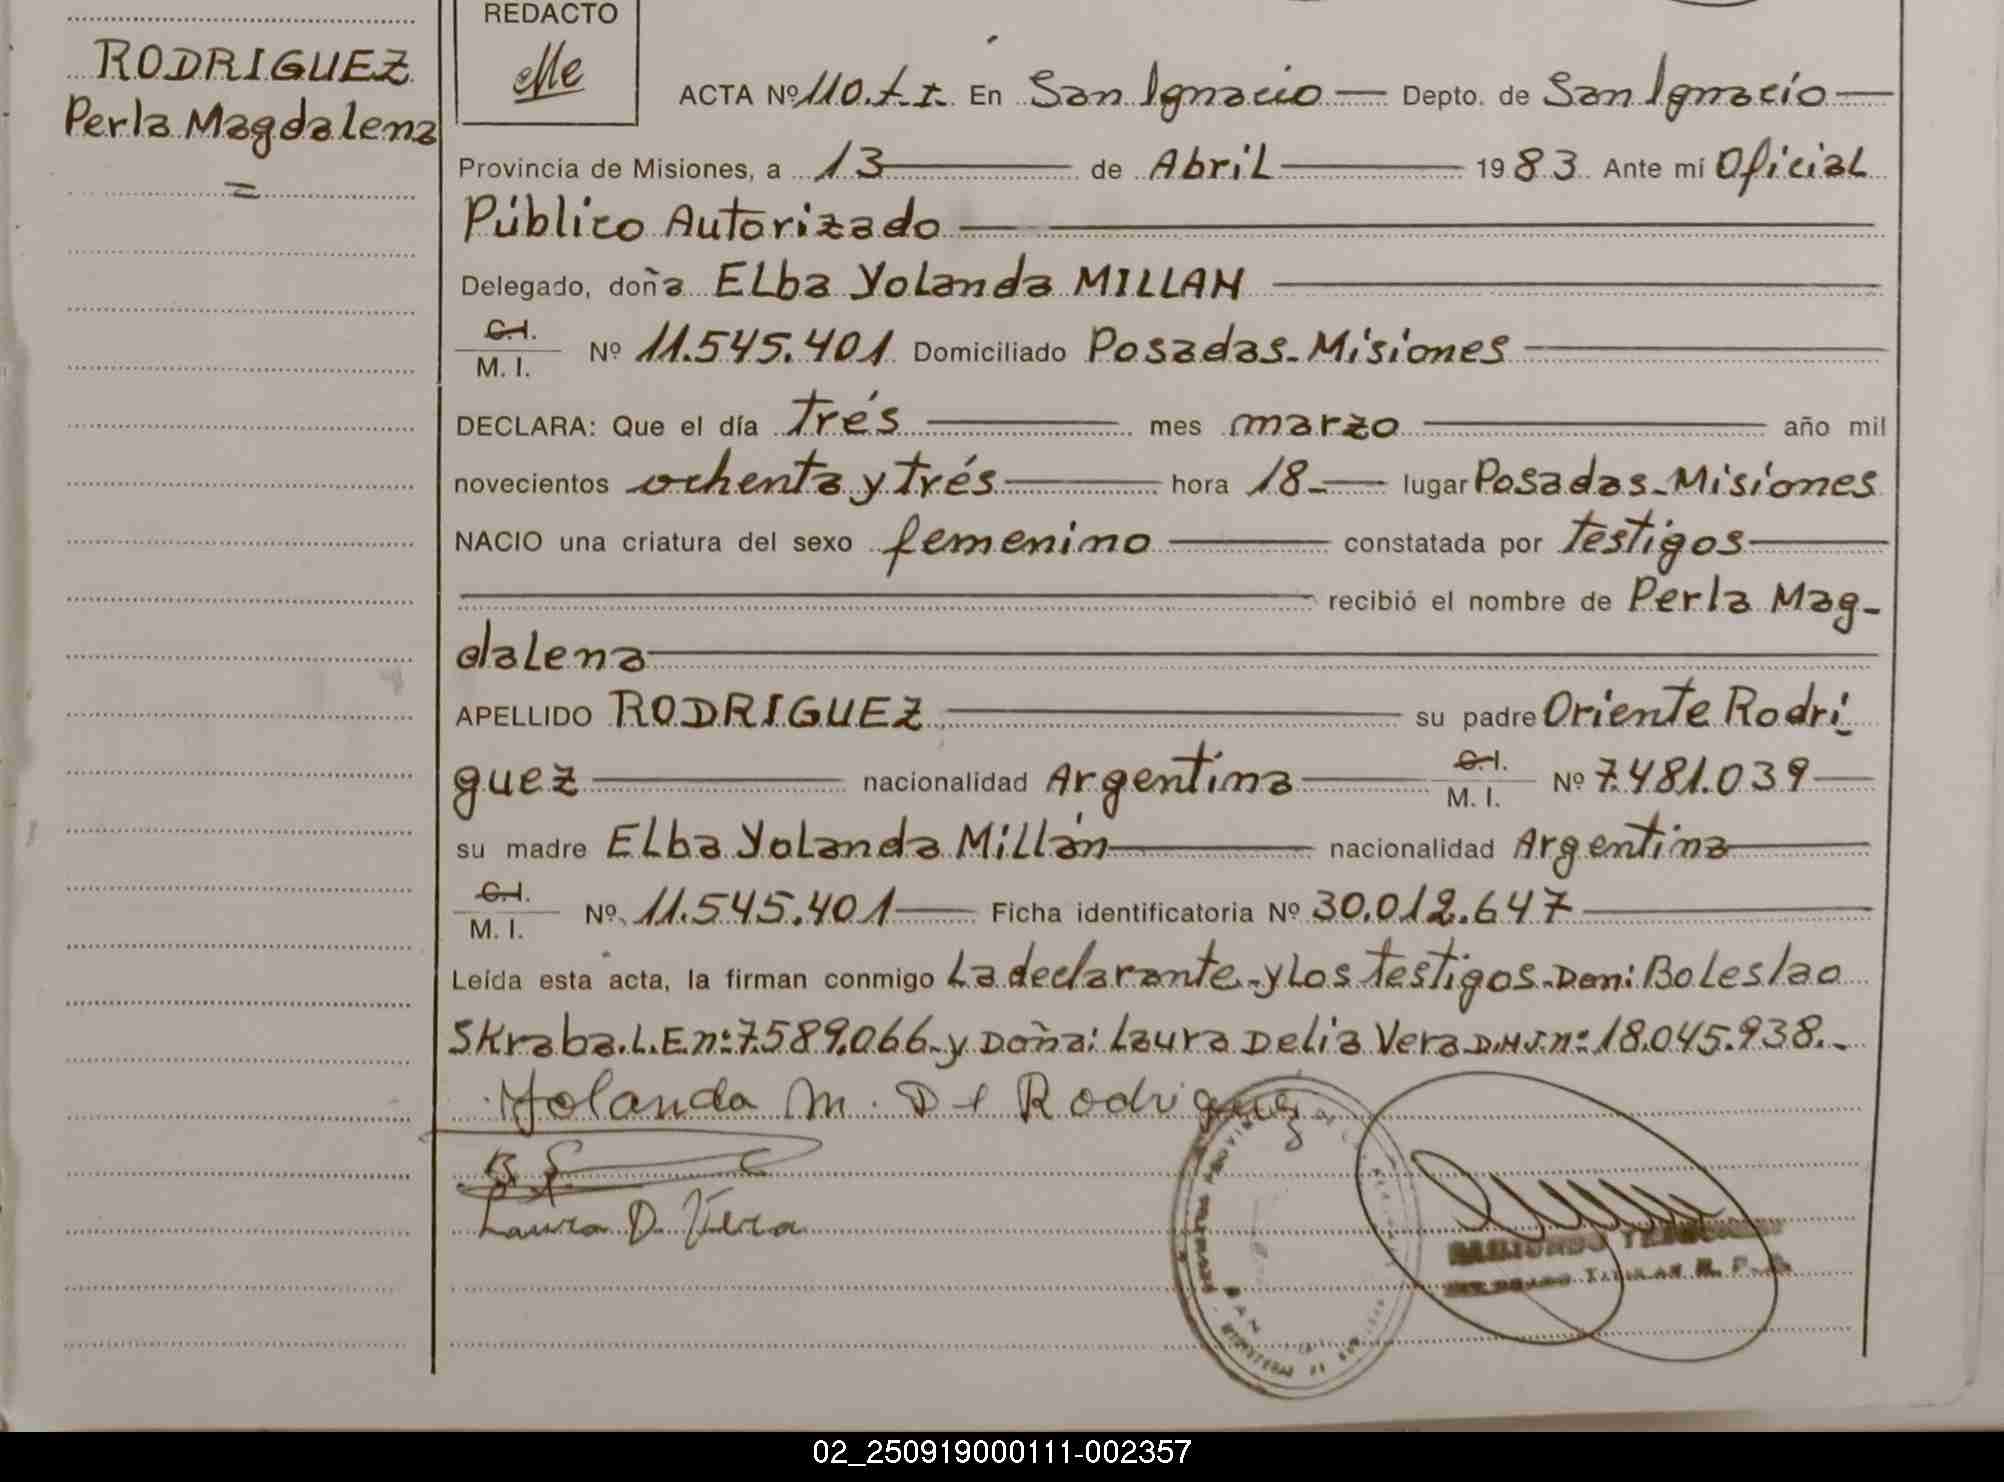 REDACTO
RODRIGUEZ
Perla Magdalena
=
ACTA Nº 110.t.I. En San Ignacio — Depto. de San Ignacio —
Provincia de Misiones, a 13 — de Abril — 1983. Ante mí Oficial
Público Autorizado —
Delegado, doña Elba Yolanda MILLAN —
C.I. M. I. Nº 11.545.401 Domiciliado Posadas-Misiones —
DECLARA: Que el día trés — mes marzo — año mil
novecientos ochenta y trés — hora 18.— lugar Posadas-Misiones
NACIO una criatura del sexo femenino — constatada por testigos —
— recibió el nombre de Perla Mag-
dalena —
APELLIDO RODRIGUEZ — su padre Oriente Rodrí
guez — nacionalidad Argentina — C.I. M. I. Nº 7.481.039 —
su madre Elba Yolanda Millán — nacionalidad Argentina —
C.I. M. I. Nº 11.545.401 — Ficha identificatoria Nº 30.012.647 —
Leída esta acta, la firman conmigo La declarante-y Los testigos-Don: Boleslao
Skraba.L.E.nº:7.589.066-y Doña: Laura Delia Vera D.N.I.nº:18.045.938.-
Yolanda M. De Rodriguez
B. S.
Laura D. Vera
02_250919000111-002357